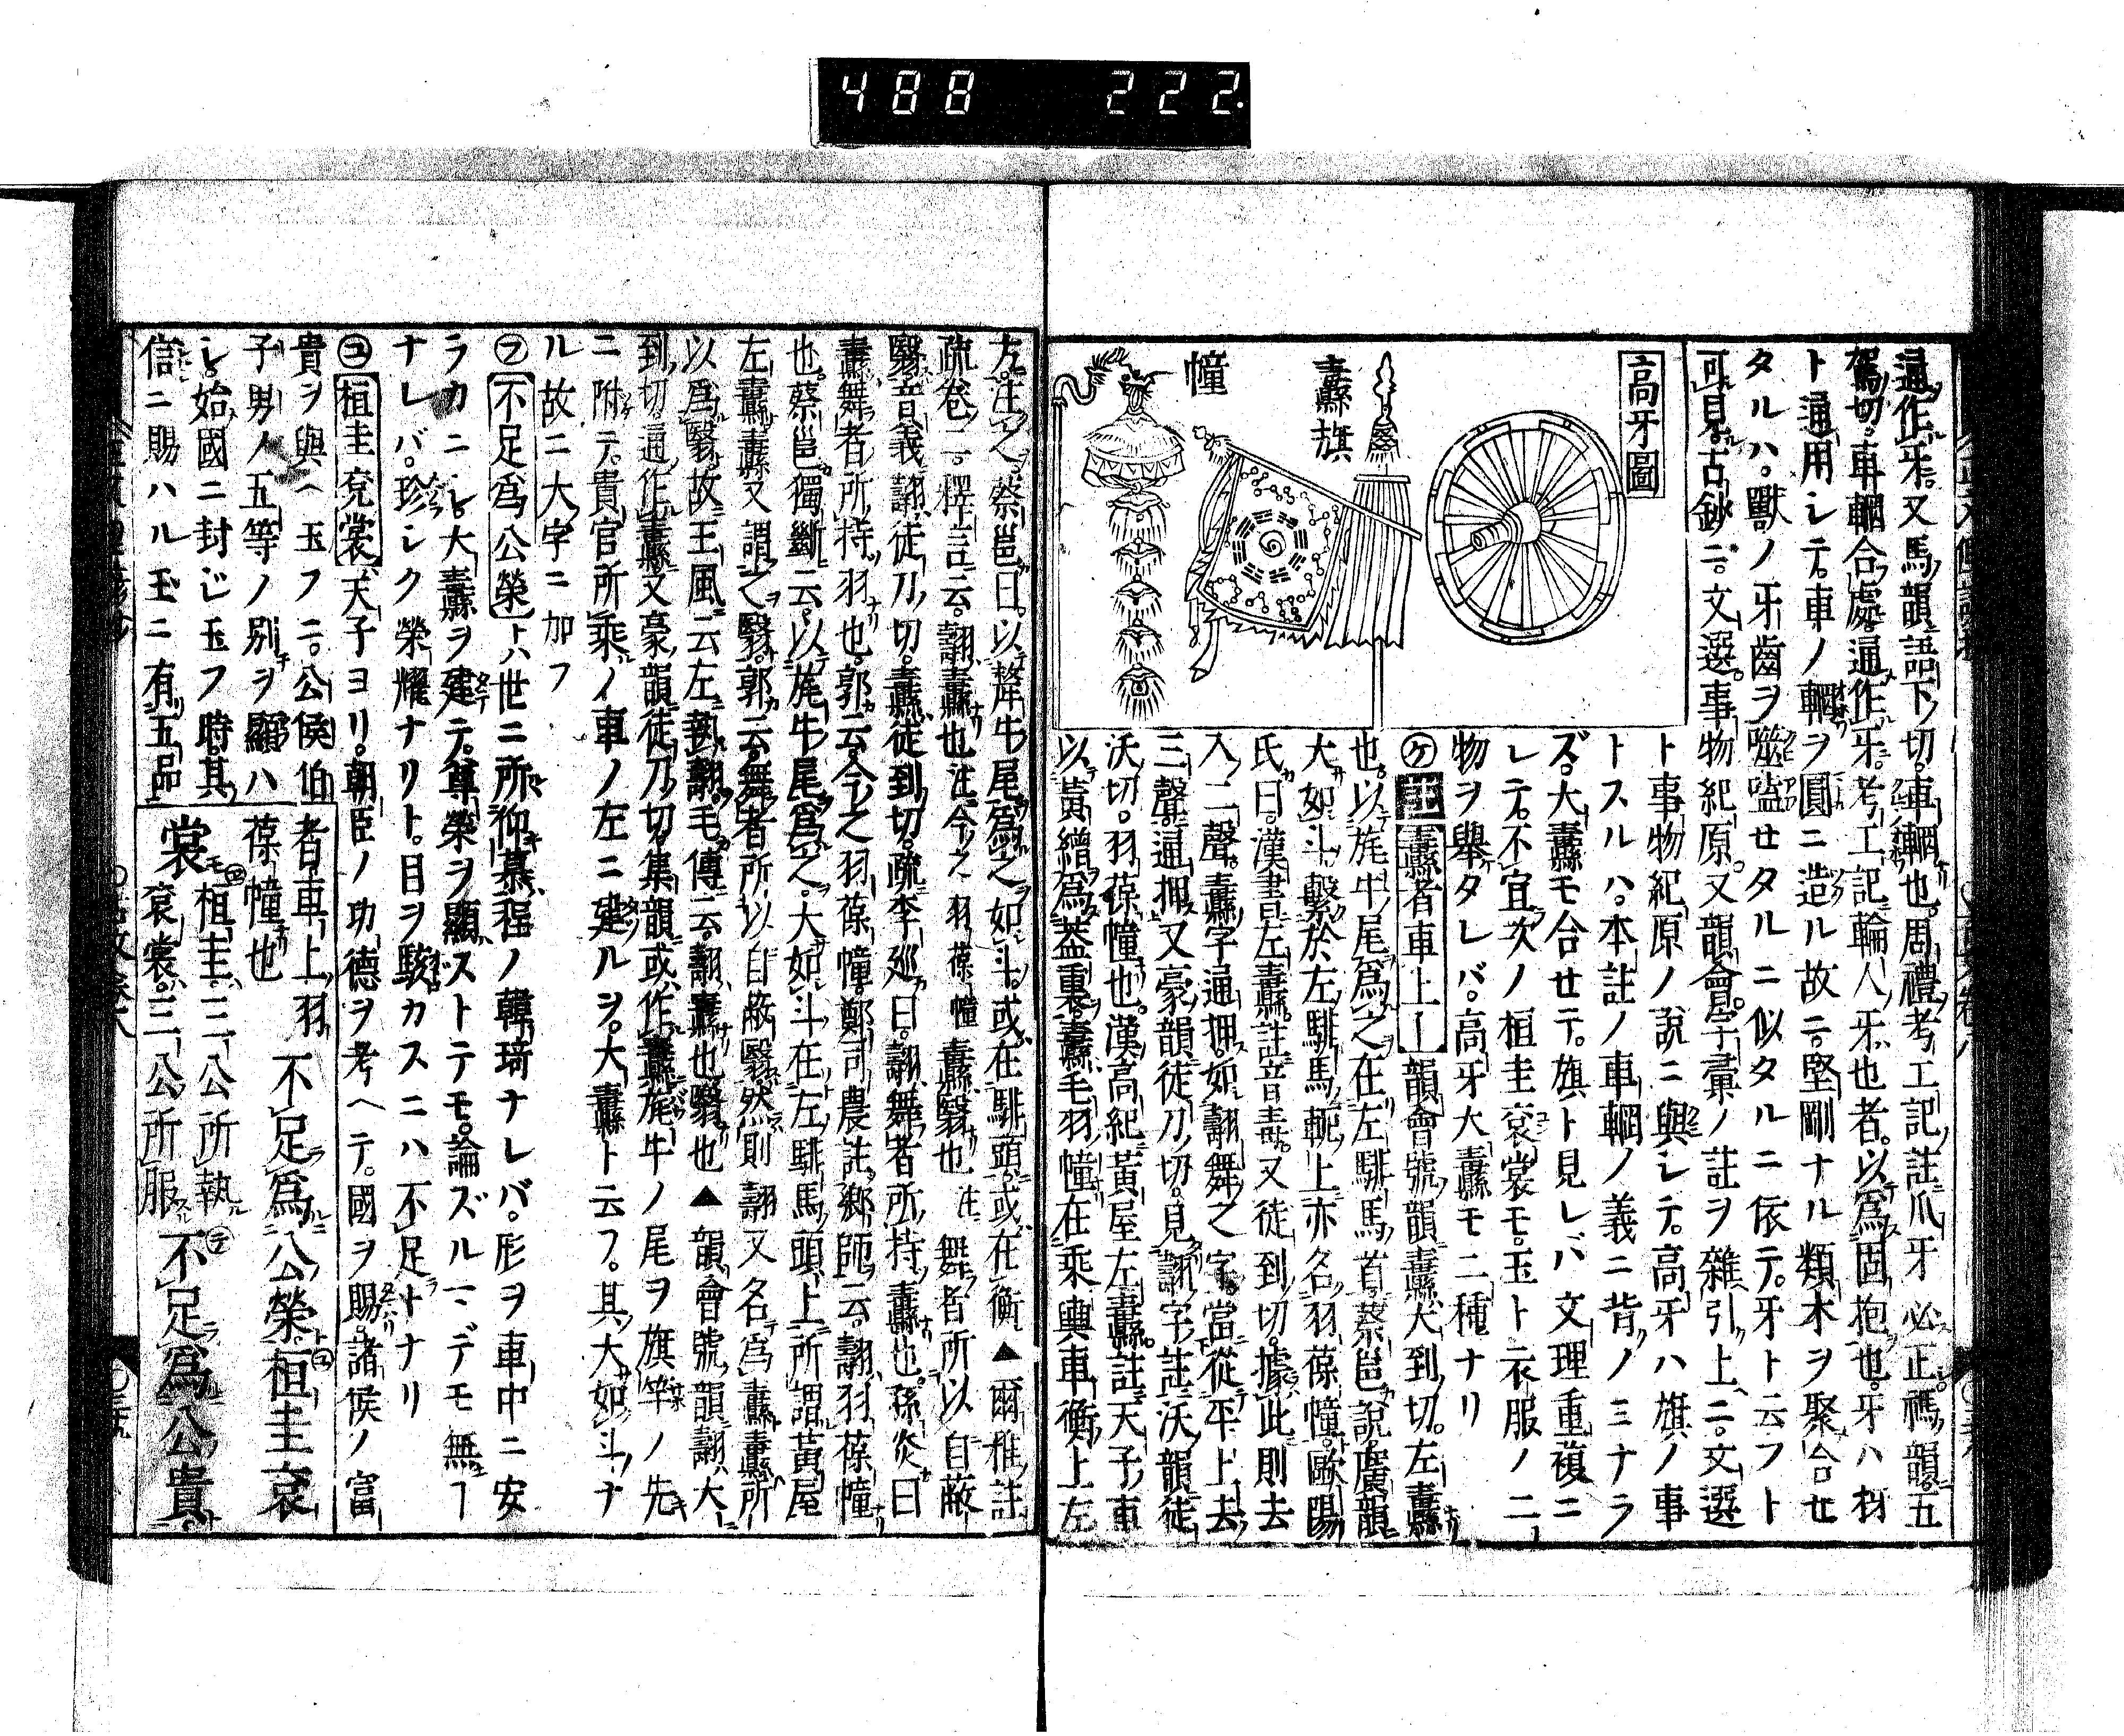 488 222
通作ル牙。又馬韻語下ノ切。車輞也。周禮考工記註爪牙必正。禡韻五
駕切。車輞合處。通作牙。考工記輪人ノ牙也者。以爲固抱也。牙ハ材
ト通用シテ。車ノ輞ヲ圓ニ造ル故ニ。堅剛ナル類木ヲ聚合セ
タルハ。獸ノ牙齒ヲ噬嗑セタルニ似タルニ依テ。牙ト云フト
可見。古鈔ニ。文選。事物紀原。又韻會。字彙ノ註ヲ雜引上ニ。文選
ト事物紀原ノ說ニ與シテ。高牙ハ旗ノ事
トスルハ。本註ノ車輞ノ義ニ背ノミナラ
ズ。大纛モ合セテ。旗ト見レバ文理重複ニ
シテ。不宜次ノ桓圭袞裳モ。玉ト衣服ノ二
物ヲ舉タレバ。高牙大纛モ二種ナリ
高牙圖
纛旗
幢
㋘註纛者車上ー韻會號韻纛大到切。左纛
也。以旄牛尾爲之在左騑馬首。蔡邕說。廣韻
大如斗。繫於左騑馬軛上亦名羽葆幢。歐陽
氏曰。漢書左纛註音毒。又徒到切。據此則去
入二聲。纛字通押。如翿舞之字。當從平上去
三聲通押又豪韻徒刀切。見翿字註。沃韻徒
沃切。羽葆幢也。漢高紀黃屋左纛。註天子車
以黃繒爲蓋裏。纛毛羽幢在乘輿車衡上左
方。注之。蔡邕曰。以犛牛尾爲之如斗。或在騑頭。或在衡▲爾雅註
疏卷二。釋言云。翿纛也注今之羽葆幢纛翳也注舞者所以自蔽
翳音義翿徒刀切。纛徒到切。疏李巡曰。翿舞者所持纛也。孫炎曰
纛舞者所持羽也。郭云。今之羽葆幢。鄭司農註鄉師云。翿羽葆幢
也。蔡邕獨斷云。以旄牛尾爲之。大如斗在左騑馬頭上所謂黃屋
左纛纛又謂之翳。郭云舞者所以自蔽翳然則翿又名爲纛纛所
以爲翳。故王風云左執翿。毛傳云翿纛也翳也▲韻會號韻翿大
到切。通作纛。又豪韻徒刀切。集韻或作纛旄牛ノ尾ヲ旗竿ノ先
ニ附テ。貴官所乘ノ車ノ左ニ建ルヲ。大纛ト云フ。其大如斗ナ
ル故ニ大字ニ加フ
㋫不足爲公榮トハ世ニ所仰慕程ノ韓琦ナレバ。形ヲ車中ニ安
ラカニシ。大纛ヲ建テ。尊榮ヲ顯ストテモ。論ズルマデモ無フ
ナレバ。珍シク榮耀ナリト。目ヲ駭カスニハ不足トナリ
㋙桓圭袞裳天子ヨリ。朝臣ノ功德ヲ考ヘテ。國ヲ賜。諸侯ノ富
貴ヲ與ヘ玉フニ。公侯伯
子男ノ五等ノ別ヲ顯ハ
シ。始國ニ封ジ玉フ時。其
信ニ賜ハル玉ニ有五品
者車上羽
葆幢也
不足爲公榮。桓圭袞
裳桓圭。三公所執
袞裳。三公所服
不足爲公貴。